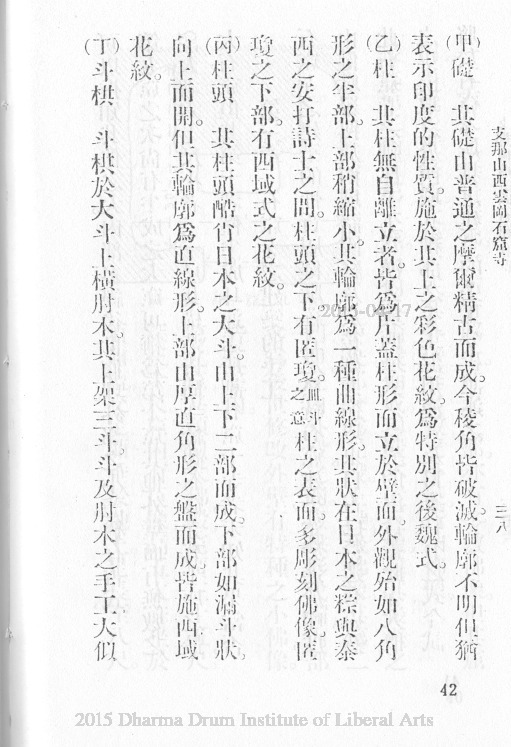 支那山西雲岡石窟寺
三八
(甲)礎　其礎由普通之摩爾精古而成。今稜角皆破滅。輪廓不明。但猶
表示印度的性質。施於其上之彩色花紋。爲特別之後魏式。
(乙)柱　其柱無自離立者。皆爲片蓋柱形而立於壁面。外觀殆如八角
形之半部。上部稍縮小。其輪廓爲一種曲線形。其狀在日本之粽與泰
西之安打詩士之間。柱頭之下。有匿瓊。皿斗之意柱之表面。多彫刻佛像。匿
瓊之下部。有西域式之花紋。
(丙)柱頭　其柱頭酷肖日本之大斗。由上下二部而成。下部如漏斗狀。
向上而開。但其輪廓爲直線形。上部由厚直角形之盤而成。皆施西域
花紋。
(丁)斗栱　斗栱於大斗上橫肘木。其上架三斗。斗及肘木之手工大似
42
2015 Dharma Drum Institute of Liberal Arts